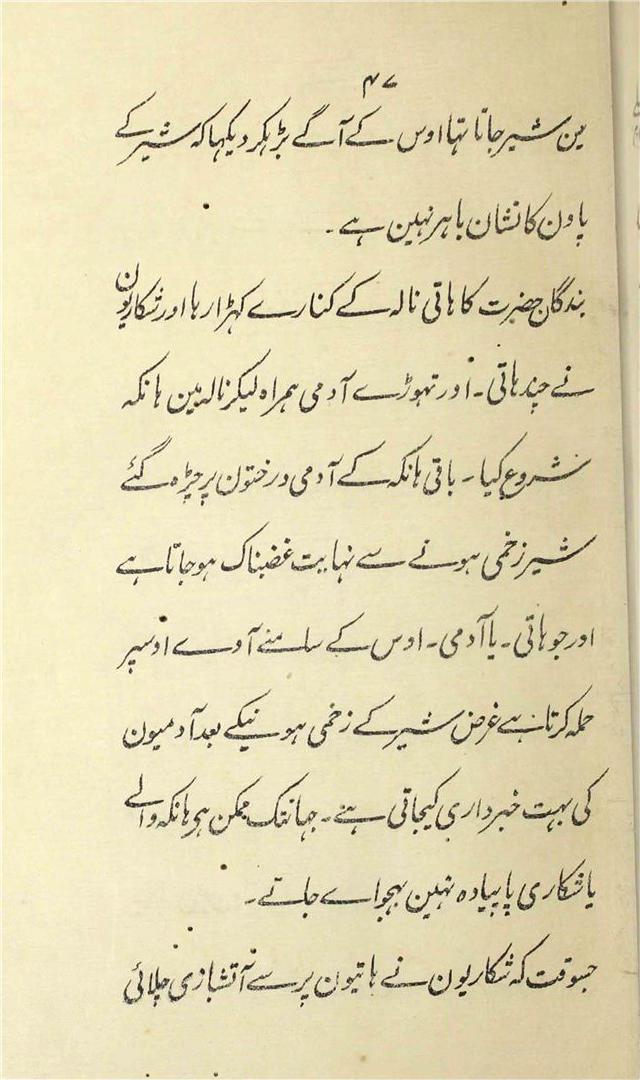 ۴۷
مین شیر جاتا تہا اوس کے آگے بڑہکر دیکہا کہ شیر کے
پاون کا نشان باہر نہین ہے۔
بندگان حضرت کا ہاتی نالہ کے کنارے کہڑا رہا اور شکاریون
نے چند ہاتی۔ اور تہوڑے آدمی ہمراہ لیکر نالہ مین ہانکہ
شروع کیا۔ باقی ہانکہ کے آدمی درختون پر چڑہ گئے
شیر زخمی ہونے سے نہایت غضبناک ہو جاتا ہے
اور جو ہاتی۔ یا آدمی۔ اوس کے سامنے آوے اوسپر
حملہ کرتا ہے غرض شیر کے زخمی ہونیکے بعد آدمیون
کی بہت خبرداری کیجاتی ہے۔ جہانتک ممکن ہو ہانکہ والے
یا شکاری پاپیادہ نہین بہجواے جاتے۔
جسوقت کہ شکاریون نے ہاتیون پر سے آتشبازی چلائی